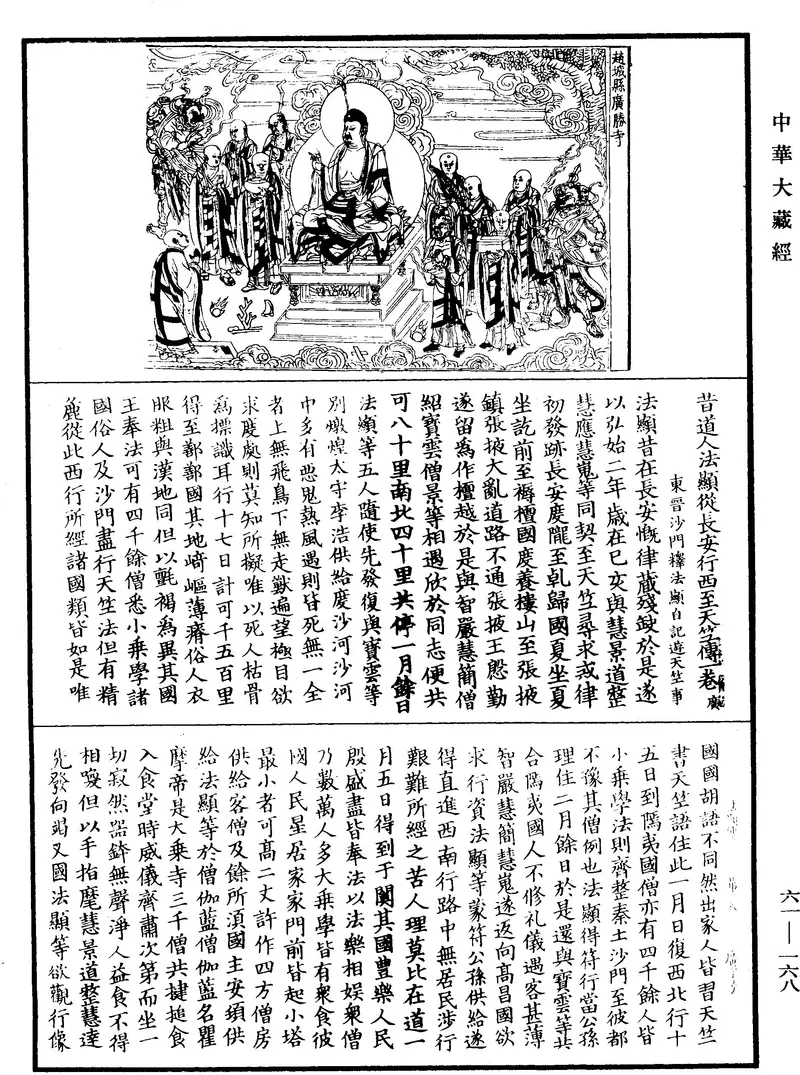 中華大藏經
趙城縣廣勝寺
昔道人法顯從長安行西至天竺傳一卷 廣
東晉沙門釋法顯自記遊天竺事
法顯昔在長安慨律藏殘缺於是遂
以弘始二年歲在己亥與慧景道整
慧應慧嵬等同契至天竺尋求戒律
初發跡長安度隴至乹歸國夏坐夏
坐訖前至褥檀國度養樓山至張掖
鎮張掖大亂道路不通張掖王慇勤
遂留為作檀越於是與智嚴慧簡僧
紹寶雲僧景等相遇欣於同志便共
可八十里南北四十里共停一月餘日
法顯等五人隨使先發復與寶雲等
別燉煌太守李浩供給度沙河沙河
中多有惡鬼熱風遇則皆死無一全
者上無飛鳥下無走獸遍望極目欲
求度處則莫知所擬唯以死人枯骨
為標識耳行十七日計可千五百里
得至鄯鄯國其地崎嶇薄瘠俗人衣
服粗與漢地同但以氈褐為異其國
王奉法可有四千餘僧悉小乘學諸
國俗人及沙門盡行天竺法但有精
麁從此西行所經諸國類皆如是唯
國國胡語不同然出家人皆習天竺
書天竺語住此一月日復西北行十
五日到隖夷國僧亦有四千餘人皆
小乘學法則齊整秦土沙門至彼都
不豫其僧例也法顯得符行當公孫
理住二月餘日於是還與寶雲等共
合隖夷國人不修礼儀遇客甚薄
智嚴慧簡慧嵬遂返向高昌國欲
求行資法顯等蒙符公孫供給遂
得直進西南行路中無居民涉行
艱難所經之苦人理莫比在道一
月五日得到于闐其國豊樂人民
殷盛盡皆奉法以法樂相娛衆僧
乃數萬人多大乘學皆有衆食彼
國人民星居家家門前皆起小塔
最小者可高二丈許作四方僧房
供給客僧及餘所湏國主安頓供
給法顯等於僧伽藍僧伽藍名瞿
摩帝是大乘寺三千僧共揵搥食
入食堂時威儀齊肅次第而坐一
切寂然器鉢無聲淨人益食不得
相喚但以手指麾慧景道整慧達
先發向竭叉國法顯等欲觀行像
六一—一六八